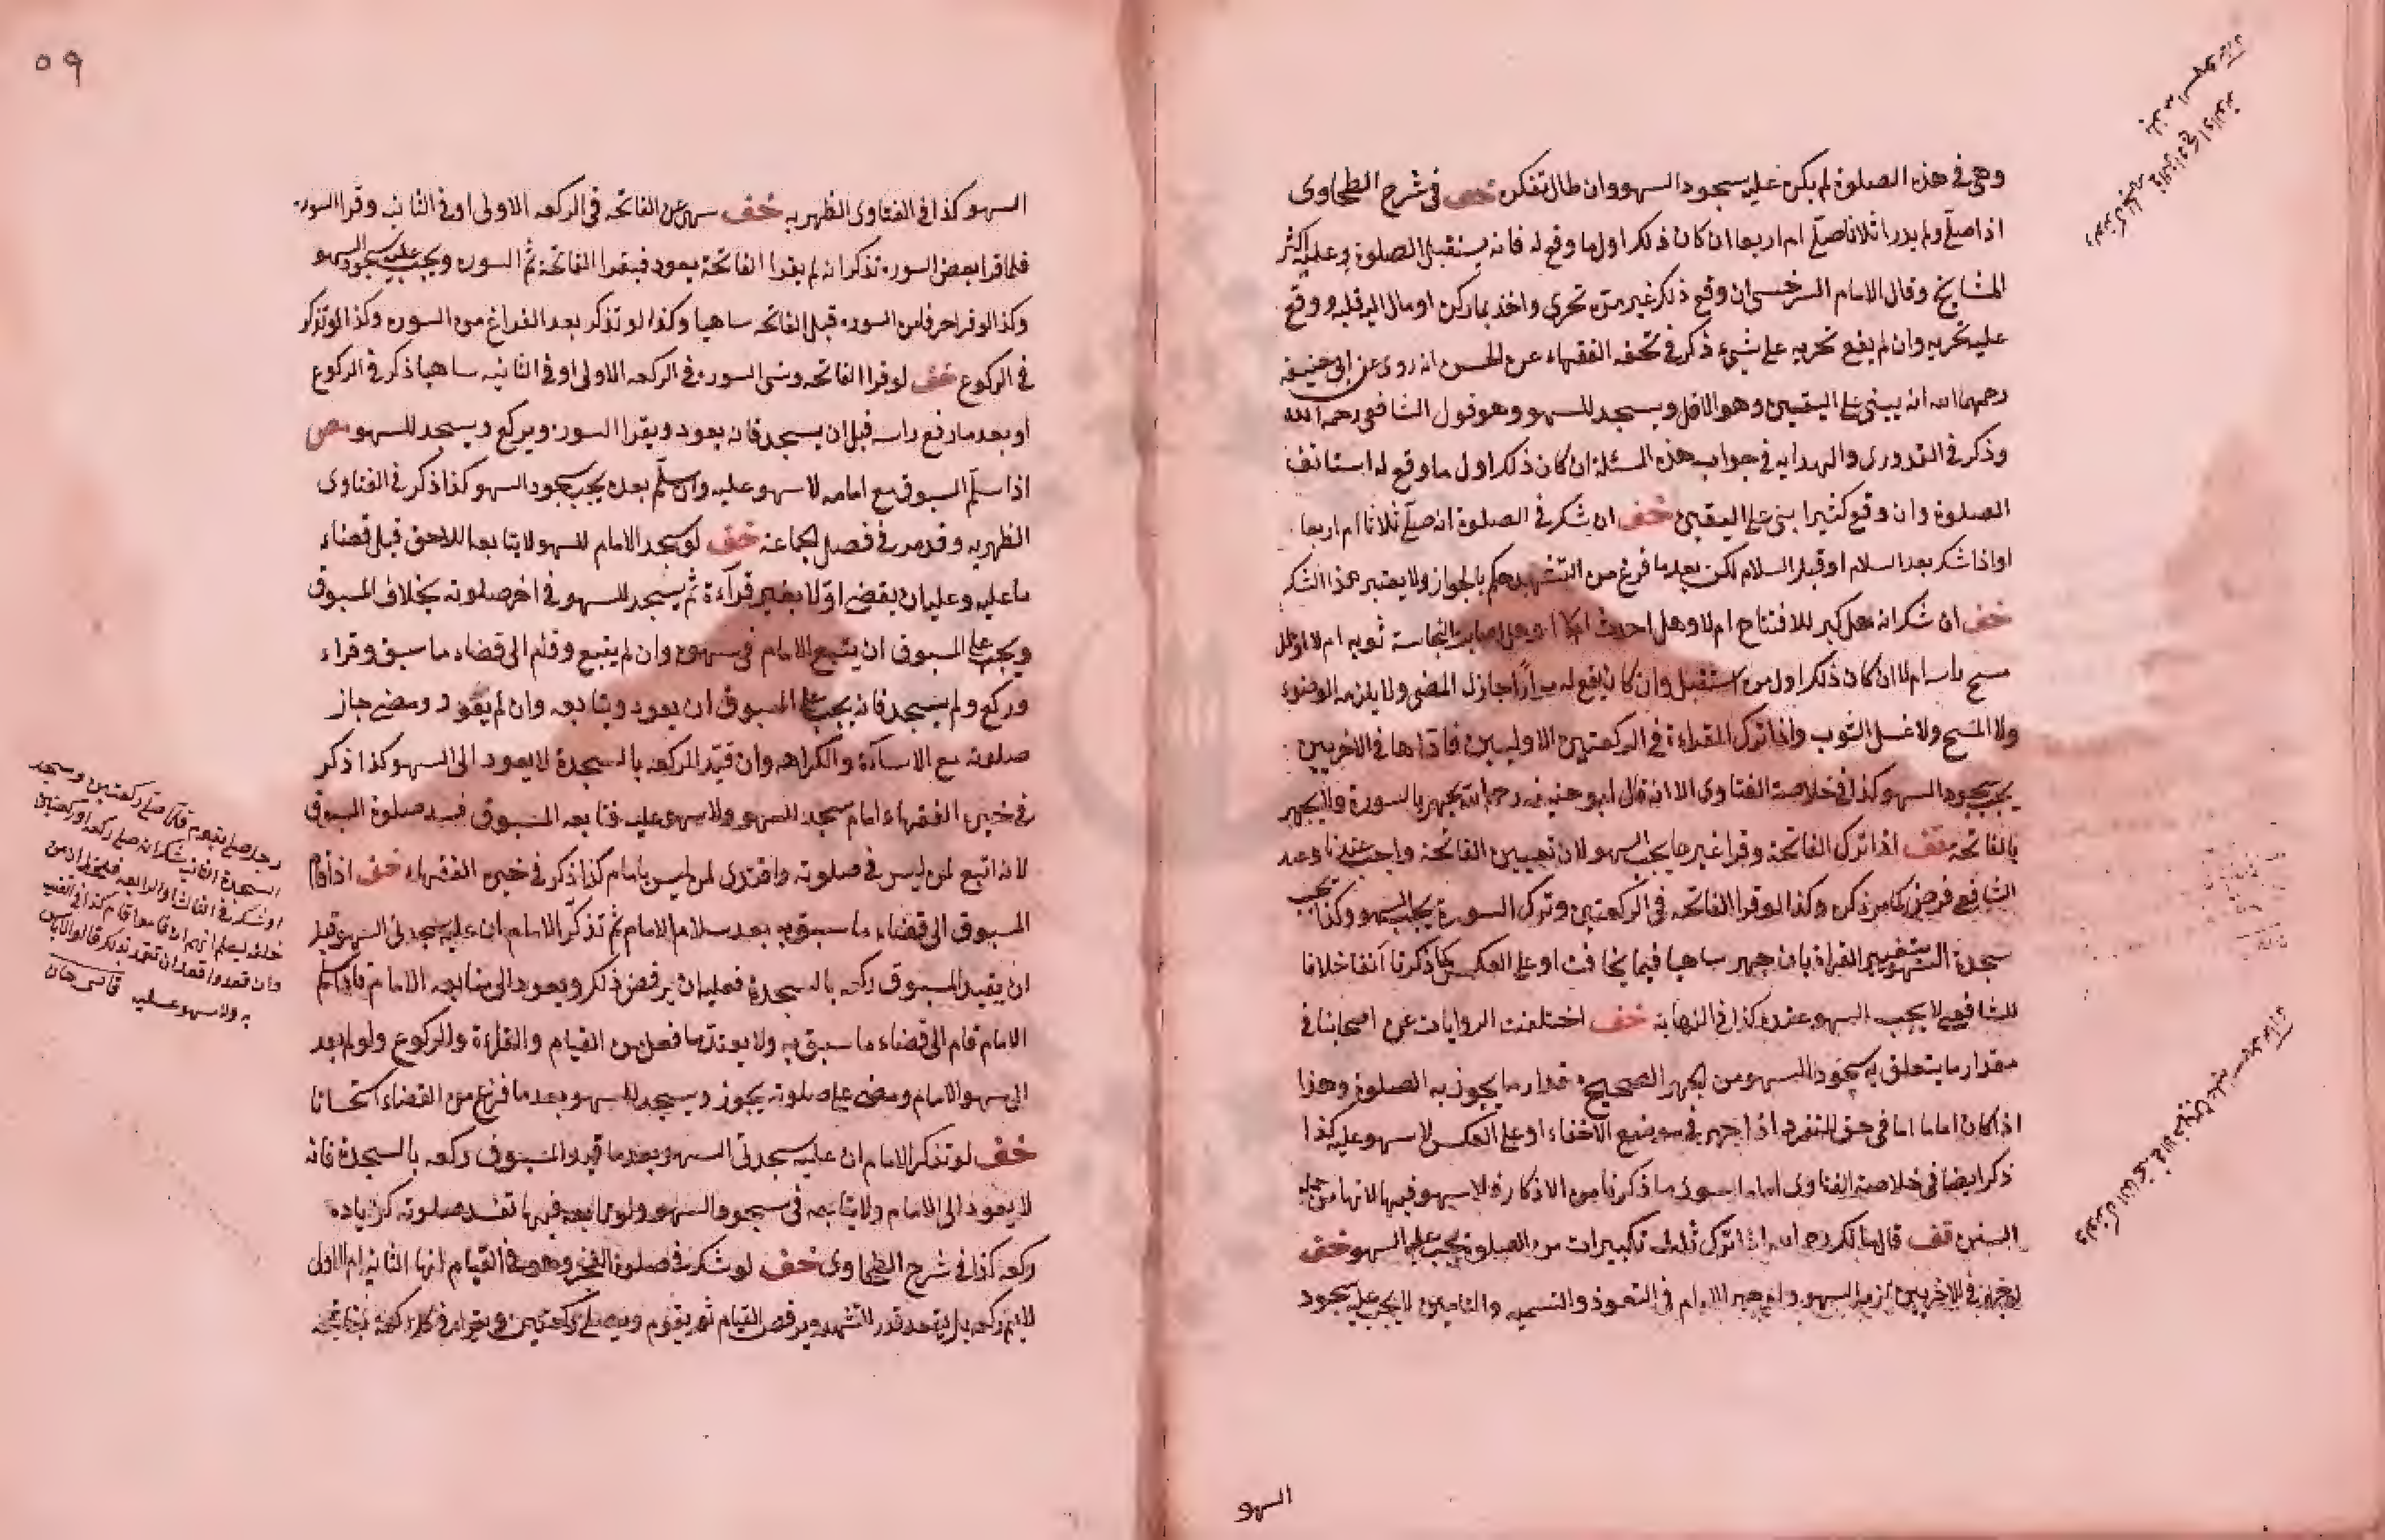 وهى فى هذه الصلوة لم يكن عليه سجود السهو وان طال تفكره خف فى شرح الطحاوى
اذا صلى ولم يدر اثلاثا صلى ام اربعا ان كان ذلك اول ما وقع له فانه يستقبل الصلوة وعليه اكثر
المشايخ وقال الامام السرخسى ان وقع ذلك غير مرة تحرى واخذ بما ركن او مال اليه قلبه ووقع
عليه تحريه وان لم يقع تحريه على شىء ذكر فى تحفه الفقهاء عن الحسن انه روى عن ابى حنيفه
رحمهما الله انه يبنى على اليقين وهو الاقل ويسجد للسهو وهو قول الشافعى رحمه الله
وذكر فى القدورى والهدايه فى جواب هذه المسئلة ان كان ذلك اول ما وقع له استانف
الصلوة وان وقع كثيرا بنى على اليقين خف ان شك فى الصلوة انه صلى ثلاثا ام اربعا
او اذا شك بعد السلام او قبل السلام لكن بعد ما فرغ من التشهد حكم بالجواز ولا يعتبر هذا الشك
خف ان شك انه هل كبر للافتتاح ام لا وهل احدث ام لا وهل اصابت النجاسة ثوبه ام لا او هل
مسح راسه ام لا ان كان ذلك اول مرة استقبل وان كان يقع له مرارا جاز له المضى ولا يلزمه الوضوء
ولا المسح ولا غسل الثوب واذا ترك القراءة فى الركعتين الاوليين فاداها فى الاخريين
يجب سجود السهو كذا فى خلاصة الفتاوى الا انه قال ابو حنيفه رحمه الله يجهر بالسورة ولا يجهر
بالفاتحة قف اذا ترك الفاتحة وقرا غيرها يجب السهو لان تعيين الفاتحة واجب عندنا وعند
الشافعى فرض كما مر ذكره وكذا لو قرا الفاتحه فى الركعتين وترك السورة يجب السهو وكذا يجب
سجدة السهو بتغيير القراة بان جهر ساهيا فيما يخافت او على العكس كما ذكرنا آنفا خلافا
للشافعى لا يجب السهو عنده كذا فى النهاية خف اختلفت الروايات عن اصحابنا فى
مقدار ما يتعلق به سجود السهو من الجهر الصحيح قدار ما يجوز به الصلوة وهذا
اذا كان اماما اما فى حق المنفرد اذا جهر فى موضع الاخفاء او على العكس لا سهو عليه كذا
ذكر ايضا فى خلاصة الفتاوى اما ما سوى ما ذكرنا من الاذكار فلا سهو فيها لانها من جمله
السنن قف قال مالك رحمه الله اذا ترك ثلث تكبيرات من الصلوة يجب عليه السهو خف
فى الاخريين لزمه السهو وان جهر الامام فى التعوذ والتسميه والتامين لا يجب عليه سجود
السهو
٥٩
السهو كذا فى الفتاوى الظهريه خف سهى عن الفاتحه فى الركعه الاولى او فى الثانيه وقرا السوره
فلما قرا بعض السوره تذكر انه لم يقرا الفاتحة يعود فيقرا الفاتحة ثم السوره ويجب عليه سجود السهو
وكذا لو قرا حرفا من السوره قبل الفاتحه ساهيا وكذا لو تذكر بعد الفراغ من السوره وكذا لو تذكر
فى الركوع خف لو قرا الفاتحه ونسى السوره فى الركعه الاولى او فى الثانيه ساهيا ذكر فى الركوع
او بعد ما رفع راسه قبل ان يسجد فانه يعود ويقرا السورة ويركع ويسجد للسهو مص
اذا سلم المسبوق مع امامه لا سهو عليه وان سلم بعده يجب سجود السهو كذا ذكر فى الفتاوى
الظهريه وقد مر فى فصل الجماعة خف لو سجد الامام للسهو لا يتابعه اللاحق قبل قضاء
ما عليه وعليه ان يقضى اولا بغير قرآءة ثم يسجد للسهو فى اخر صلوته بخلاف المسبوق
ويجب على المسبوق ان يتبع الامام فى سهوه وان لم يتبع وقام الى قضاء ما سبق وقراء
وركع ولم يسجد فانه يجب على المسبوق ان يعود ويتابعه وان لم يعود ومضى جاز
صلوته مع الاسآءة والكراهه وان قيد الركعه بالسجدة لا يعود الى السهو كذا ذكر
فى خيرة الفقهاء امام سجد للسهو ولا سهو عليه فتابعه المسبوق فسد صلوة المسبوق
لانه اتبع لمن ليس فى صلوته واقتدى لمن ليس بامام كذا ذكر فى خيره الفقهاء خف اذا قام
المسبوق الى قضاء ما سبق به بعد سلام الامام ثم تذكر الامام ان عليه سجدتى السهو قبل
ان يقيد المسبوق ركعه بالسجدة فعليه ان يرفض ذلك ويعود الى متابعه الامام فاذا سلم
الامام قام الى قضاء ما سبق به ولا يعتد بما فعل من القيام والقراءة والركوع ولو لم يعد
الى سهو الامام ومضى على صلوته يجوز ويسجد للسهو بعد ما فرغ من القضاء استحسانا
خف لو تذكر الامام ان عليه سجدتى السهو بعد ما قيد المسبوق ركعه بالسجدة فانه
لا يعود الى الامام ولا يتابعه فى سجود السهو ولو تابعه فيها تفسد صلوته كزياده
ركعه كذا فى شرح الطحاوى خف لو شك فى صلوة الفجر وهو فى القيام انها الثانيه ام الاول
لا يتم ركعه بل يقعد قدر التشهد ويرفض القيام ثم يقوم ويصلى ركعتين ويقرا فى كل ركعة بفاتحة
رجل صلى بقوم فلما صلى ركعتين وسجد
السجدة الثانية شك انه صلى ركعه او ركعتين
او شك فى الثالثه والرابعه فلحظ الى من
خلفه ليعلم انهم ان قاموا قام
وان قعدوا قعد
به ولا سهو عليه قاضى خان